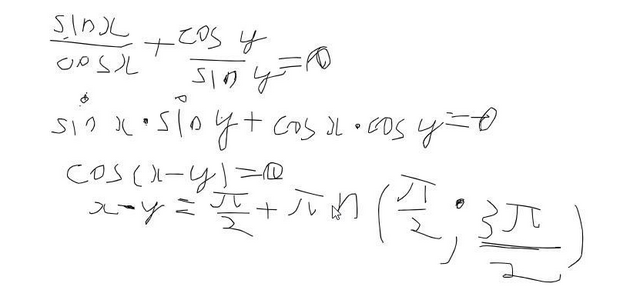 sinx/cosx + cos y/sin y = 0
sin x · sin y + cos x · cos y = 0
cos(x-y) = 0
x-y = π/2 + πn (π/2 ; 3π/2)